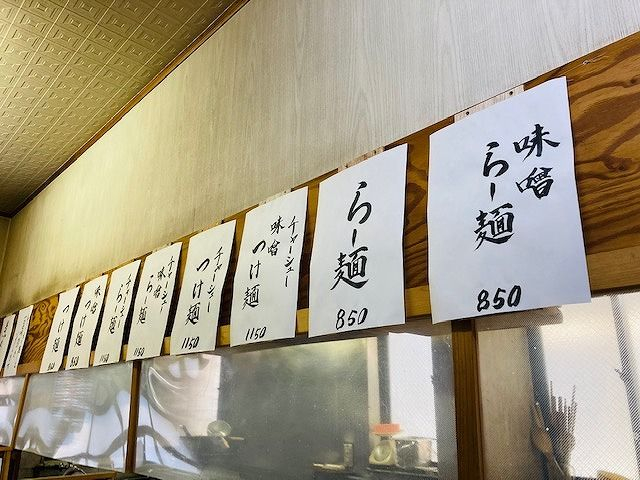 味噌
らー麺
850
らー麺
850
チャーシュー
味噌
つけ麺
1150
チャーシュー
つけ麺
1150
チャーシュー
味噌
らー麺
1150
チャーシュー
らー麺
1150
味噌
つけ麺
850
つけ麺
850